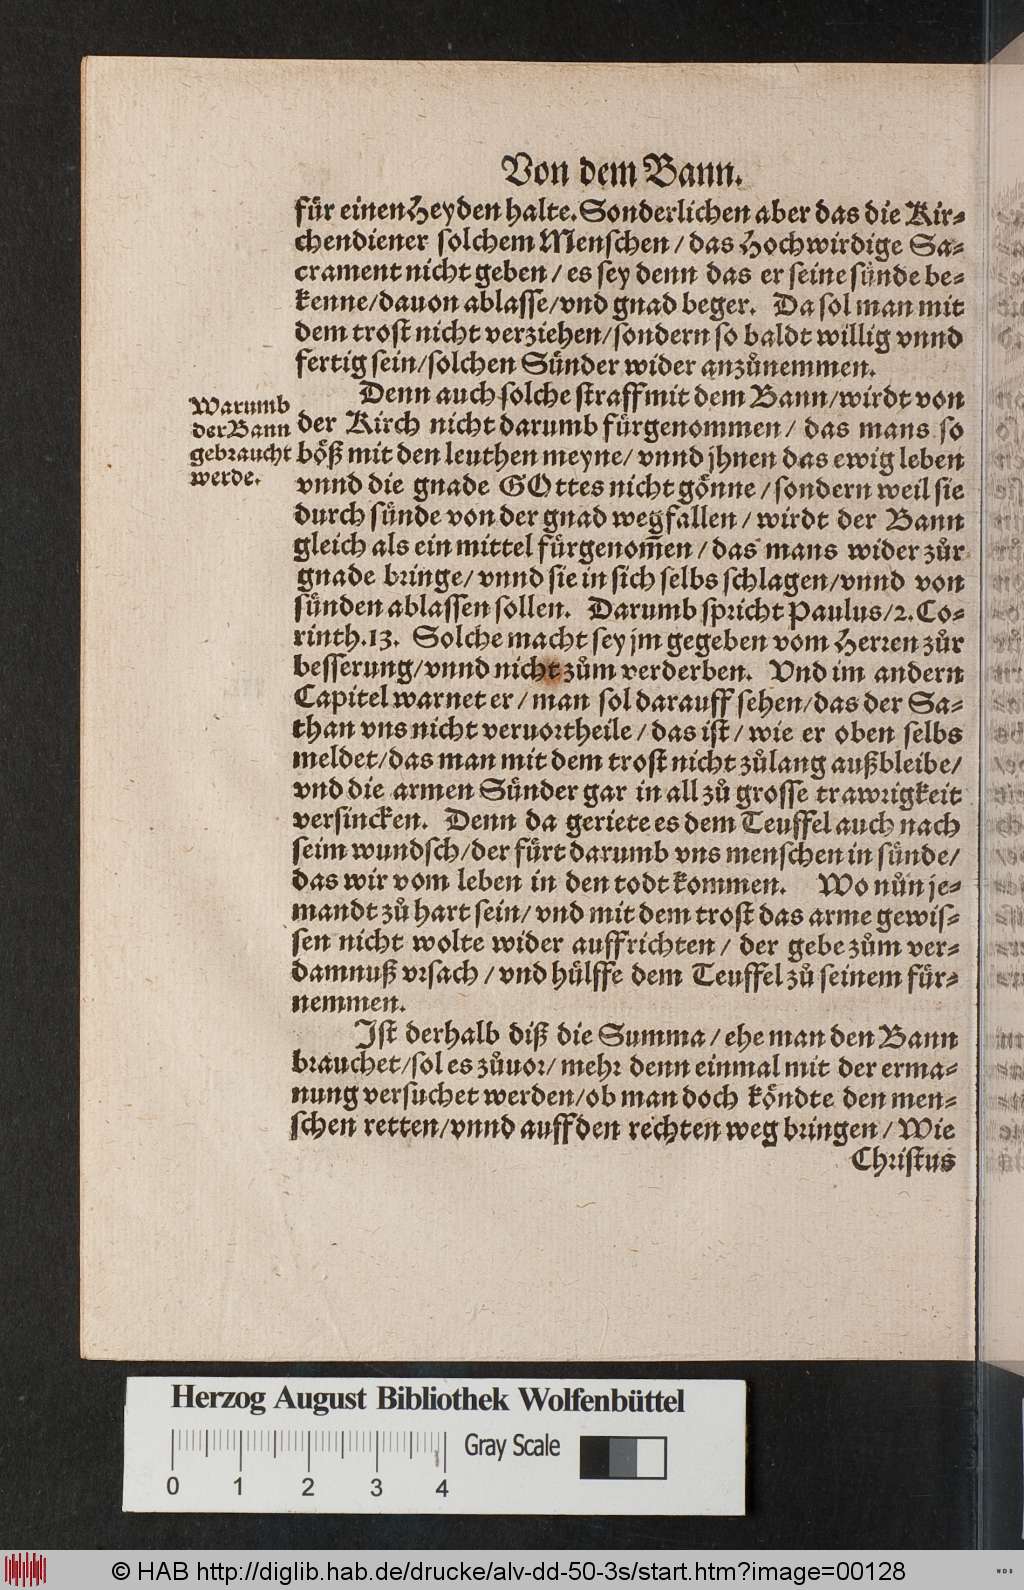 Von dem Bann.
fuͤr einen Heyden halte. Sonderlichen aber das die Kir⸗
chendiener solchem Menschen / das Hochwirdige Sa⸗
crament nicht geben / es sey denn das er seine suͤnde be⸗
kenne/dauon ablasse/vnd gnad beger. Da sol man mit
dem trost nicht verziehen/sondern so baldt willig vnnd
fertig sein/solchen Suͤnder wider anzůnemmen.
Denn auch solche straff mit dem Bann/wirdt von
Warumb
der Bann
gebraucht
werde.
der Kirch nicht darumb fuͤrgenommen / das mans so
boͤß mit den leuthen meyne/ vnnd jhnen das ewig leben
vnnd die gnade GOttes nicht goͤnne / sondern weil sie
durch suͤnde von der gnad wegfallen / wirdt der Bann
gleich als ein mittel fuͤrgenom̃en / das mans wider zůr
gnade bringe/ vnnd sie in sich selbs schlagen/vnnd von
suͤnden ablassen sollen. Darumb spricht Paulus/2. Co⸗
rinth.13. Solche macht sey jm gegeben vom Herren zůr
besserung/vnnd nicht zům verderben. Vnd im andern
Capitel warnet er / man sol darauff sehen/das der Sa⸗
than vns nicht veruortheile / das ist / wie er oben selbs
meldet/das man mit dem trost nicht zůlang außbleibe/
vnd die armen Suͤnder gar in all zů grosse trawrigkeit
versincken. Denn da geriete es dem Teuffel auch nach
seim wundsch/der fuͤrt darumb vns menschen in suͤnde/
das wir vom leben in den todt kommen. Wo nůn je⸗
mandt zů hart sein/ vnd mit dem trost das arme gewis⸗
sen nicht wolte wider auffrichten / der gebe zům ver⸗
damnuß vrsach / vnd huͤlffe dem Teuffel zů seinem fuͤr⸗
nemmen.
Ist derhalb diß die Summa / ehe man den Bann
brauchet/sol es zůuor/ mehr denn einmal mit der erma⸗
nung versuchet werden/ob man doch koͤndte den men⸗
schen retten/vnnd auff den rechten weg bringen / Wie
Christus
Herzog August Bibliothek Wolfenbüttel
Gray Scale
0 1 2 3 4
© HAB http://diglib.hab.de/drucke/alv-dd-50-3s/start.htm?image=00128